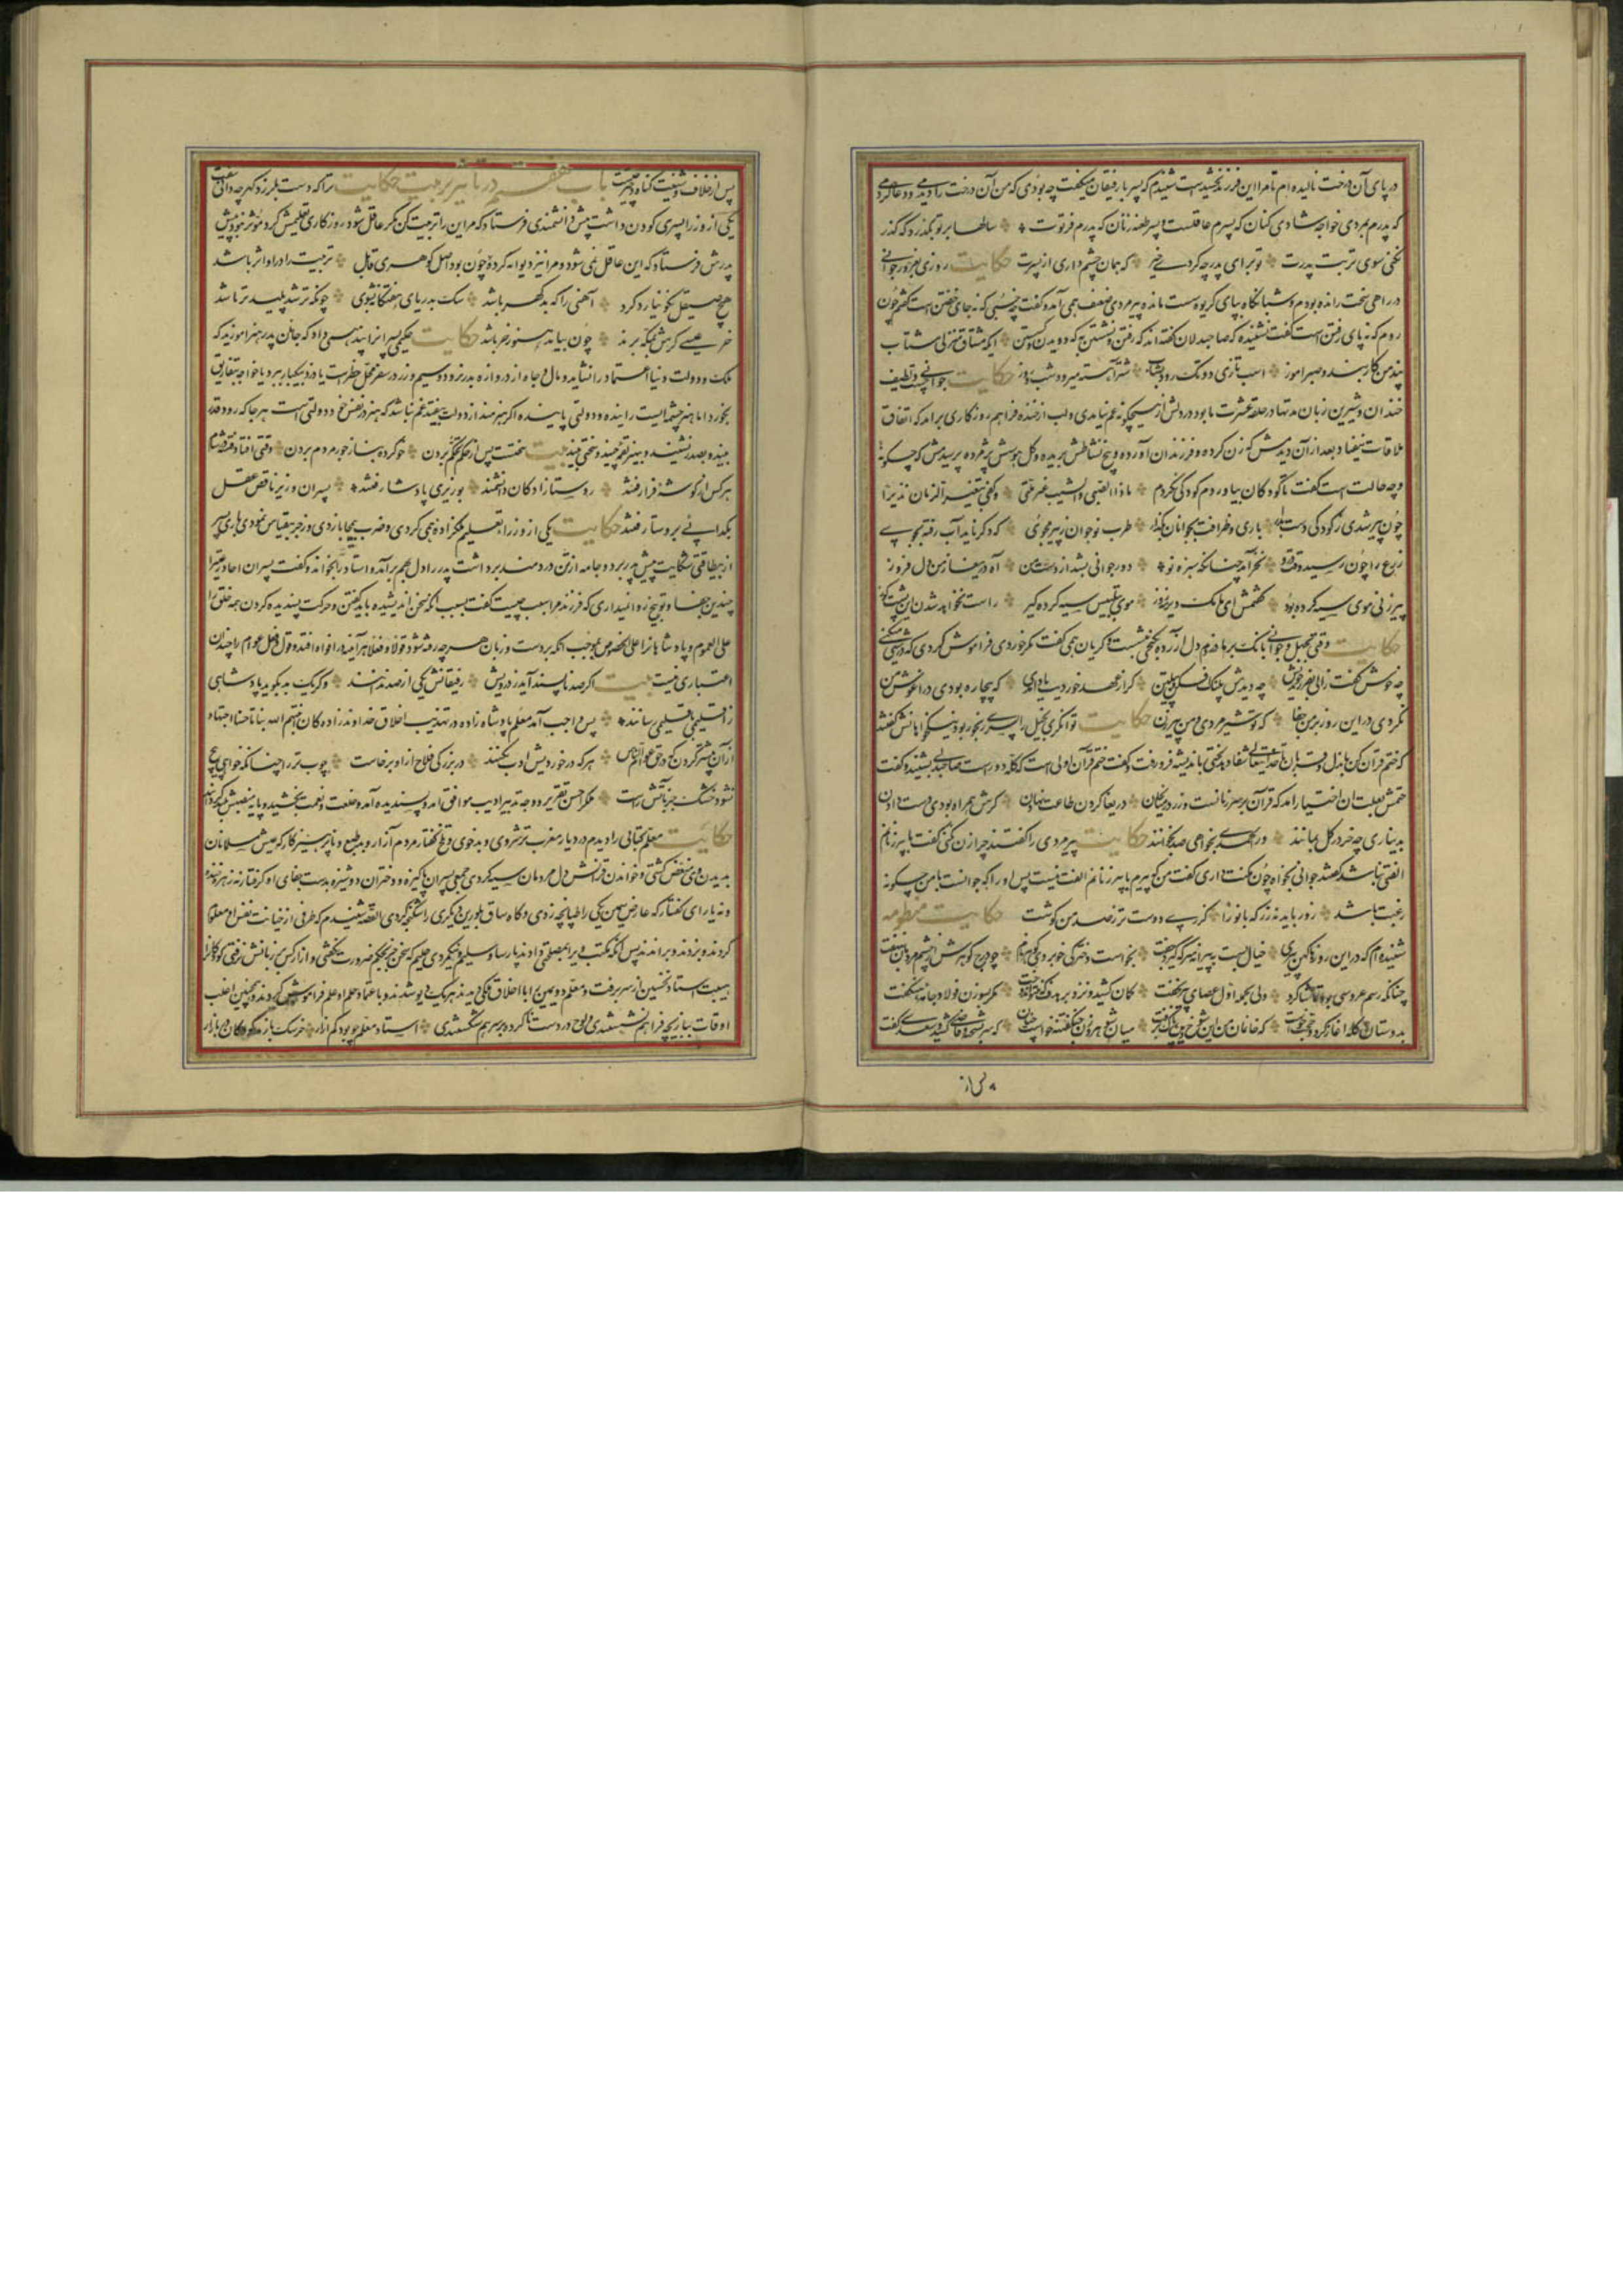 در پای آن درخت نالیده ام تا مرا این فرزند بخشیده است شنیدم که پسر با رفیقان میگفت چه بودی که من آن درخت را دیدمی و دعا کردمی
که پدرم بمردی خواجه شادی کنان که پسرم عاقلست و پسر طعنه زنان که پدرم فرتوت سالها بر تو بگذرد که گذر
نکنی سوی تربت پدرت تو بجای پدر چه کردی خیر که همان چشم داری از پسرت حکایت روزی بغرور جوانی
در راهی سخت رانده بودم و شبانگاه بپای کریوه سست مانده پیرمردی ضعیف همی آمد و گفت چه خسبی که نه جای خفتن است گفتم چون
روم که نه پای رفتن است گفت نشنیده که صاحبدلان گفته اند که رفتن و نشستن به که دویدن و گسستن ایکه مشتاق منزلی مشتاب
پند من کار بند و صبر آموز اسب تازی دو تک رود بشتاب شتر آهسته میرود شب و روز حکایت جوانی چست و لطیف
خندان و شیرین زبان مدتها در حلقه عشرت ما بود در دلش از هیچگونه غم نیامدی و لب از خنده فراهم روزگاری برآمد که اتفاق
ملاقات نیفتاد بعد از آن دیدمش که زن کرده و فرزندان آورده و بیخ نشاطش بریده و گل هوسش پژمرده پرسیدمش که چگونه
و چه حالت است گفت تا کودکان بیاوردم کودکی نکردم ماذا الصبی و الشیب غیر لمتی و کفی بتغیر الزمان نذیرا
چون پیر شدی ز کودکی دست بدار بازی و ظرافت بجوانان بگذار طرب نوجوان ز پیر مجوی که دگر ناید آب رفته بجوی
زرع را چون رسید وقت درو نخرامد چنانکه سبزه نو دور جوانی بشد از دست من آه دریغا زمن دل فروز
پیرزنی موی سیه کرده بود گفتمش ای مامک دیرینه روز موی بتلبیس سیه کرده گیر راست نخواهد شدن این پشت کوز
حکایت وقتی بجهل جوانی بانک بر مادر زدم دل آزرده بکنجی نشست و گریان همی گفت مگر خردی فراموش کردی که درشتی میکنی
چه خوش گفت زالی بفرزند خویش چو دیدش پلنگ افکن و پیلتن گر از عهد خوردیت یاد آمدی که بیچاره بودی در آغوش من
نکردی در این روز بر من جفا که تو شیرمردی و من پیرزن حکایت توانگری بخیل را پسری رنجور بود نیکخواهانش گفتند
که ختم قرآن کن یا بذل قربان تا خدایتعالی شفا دهد لختی باندیشه فرو رفت و گفت ختم قرآن اولی است که گله دور است صاحبدلی بشنید و گفت
ختمش بعلت آن اختیار آمد که قرآن بر سر زبانست و زر در میان جان دریغا گردن طاعت نهادن گرش همراه بودی دست دادن
بدیناری چو خر در گل بمانند ور الحمدی بخواهی صد بخوانند حکایت پیرمردی را گفتند چرا زن نکنی گفت با پیرزنانم
الفتی نباشد گفتند جوانی بخواه چون مکنت داری گفت من که پیرم با پیرزنانم الفت نیست پس او را که جوانست با من چگونه
رغبت باشد زور باید نه زر که بانو را گزری دوست تر ز صد من گوشت حکایت منظومه
شنیده ام که در این روزها کهن پیری خیال بست به پیرانه سر که گیرد جفت بخواست دخترکی خوبروی گوهر نام چو درج گوهرش از چشم مردمان بنهفت
چنانکه رسم عروسی بود تماشا کرد ولی بحمله اول عصای پیر بخفت کمان کشید و نزد بر هدف که نتوان دوخت مگر بسوزن فولاد جامه هنگفت
بدوستان گله آغاز کرد و حجت خواست که خان و مان من این شوخ دیده پاک برفت میان شوهر و زن جنگ و فتنه خواست چنان که سر بشحنه و قاضی کشید و سعدی گفت
پس از
پس از خلاف و شنعت گناه دختر چیست باب هفتم در تاثیر تربیت حکایت ترا که دست بلرزد گهر چه دانی سفت
یکی از وزرا پسری کودن داشت پیش دانشمندی فرستاد که مر این را تربیت کن مگر عاقل شود روزگاری تعلیمش کرد مؤثر نبود پیش
پدرش فرستاد که این عاقل نمی شود و مرا نیز دیوانه کرد چون بود اصل گوهری قابل تربیت را در او اثر باشد
هیچ صیقل نکو نیارد کرد آهنی را که بد گهر باشد سگ بدریای هفتگانه بشوی چونکه تر شد پلیدتر باشد
خر عیسی گرش بمکه برند چون بیاید هنوز خر باشد حکایت حکیمی پسران را پند همی داد که جان پدر هنر آموزید که
ملک و دولت دنیا اعتماد را نشاید و مال و جاه از دروازه بدر نرود و سیم و زر در سفر محل خطر است یا دزد بیکبار ببرد یا خواجه بتفاریق
بخورد اما هنر چشمه ایست زاینده و دولتی پاینده اگر هنرمند از دولت بیفتد غم نباشد که هنر در نفس خود دولتی است هر جا که رود قدر
بیند و بصدر نشیند و بی هنر لقمه چیند و سختی بیند بیت سختست پس از جاه تحکم بردن خو کرده بناز جور مردم بردن وقتی افتاد فتنه در شام
هر کس از گوشه فرا رفتند روستازادگان دانشمند بوزیری پادشا رفتند پسران وزیر ناقص عقل
بگدایی بروستا رفتند حکایت یکی از وزرا تعلیم ملکزاده همی کردی و ضرب بیمحابا زدی و زجر بیقیاس نمودی باری پسر
از بیطاقتی شکایت پیش پدر برد و جامه از تن دردمند برداشت پدر را دل بهم برآمد و استاد را بخواند و گفت پسران آحاد رعیت را
چندین جفا و توبیخ روا نمیداری که فرزند مرا سبب چیست گفت سبب آنکه سخن اندیشیده باید گفتن و حرکت پسندیده کردن همه خلق را
علی العموم و پادشاهانرا علی الخصوص بموجب آنکه بر دست و زبان هر چه رفته شود قولا و فعلا هر آینه در افواه افتد و قول و فعل عوام را چندان
اعتباری نیست بیت اگر صد ناپسند آید ز درویش رفیقانش یکی از صد ندانند وگر یک بد بگوید پادشاهی
ز اقلیمی باقلیمی رسانند پس واجب آمد معلم پادشاه زاده در تهذیب اخلاق خداوند زادگان انبتهم الله نباتا حسنا اجتهاد
از آن بیشتر کردن که در حق عوام الناس هر که در خردیش ادب نکنند در بزرگی فلاح از او برخاست چوب تر را چنانکه خواهی پیچ
نشود خشک جز بآتش راست ملک را حسن تقریر و وجه تدبیر ادیب موافق آمد و پسندیده آمد و خلعت و نعمت بخشید و پایه منصبش بلند گردانید
حکایت معلم کتابی را دیدم در دیار مغرب ترشروی و بدخوی و تلخ گفتار مردم آزار و بد طبع و ناپرهیزکار که عیش مسلمانان
بدیدن وی منغص گشتی و خواندن قرآنش دل مردمان سیه کردی جمعی پسران پاکیزه و دختران دوشیزه بدست جفای او گرفتار نه زهره خنده
و نه یارای گفتار گه عارض سیمین یکی را طپانچه زدی و گاه ساق بلورین دیگری را شکنجه کردی القصه شنیدم که طرفی از خیانت نفس او معلوم
کردند و بزدند و براندند پس آنکه مکتب ویرا بمصلحی دادند پارسا و سلیم و نیکمردی حلیم که سخن جز بحکم ضرورت نگفتی و آزار کس بر زبانش نرفتی کودکانرا
هیبت استاد نخستین از سر برفت و معلم دومین را با اخلاق ملکی دیدند هر یک دیو شدند و باعتماد حلم او علم فراموش کردند و همچنین اغلب
اوقات ببازیچه فراهم نشستندی و لوح درست ناکرده بر سر هم شکستندی استاد معلم چو بود کم آزار خرسک بازند کودکان در بازار